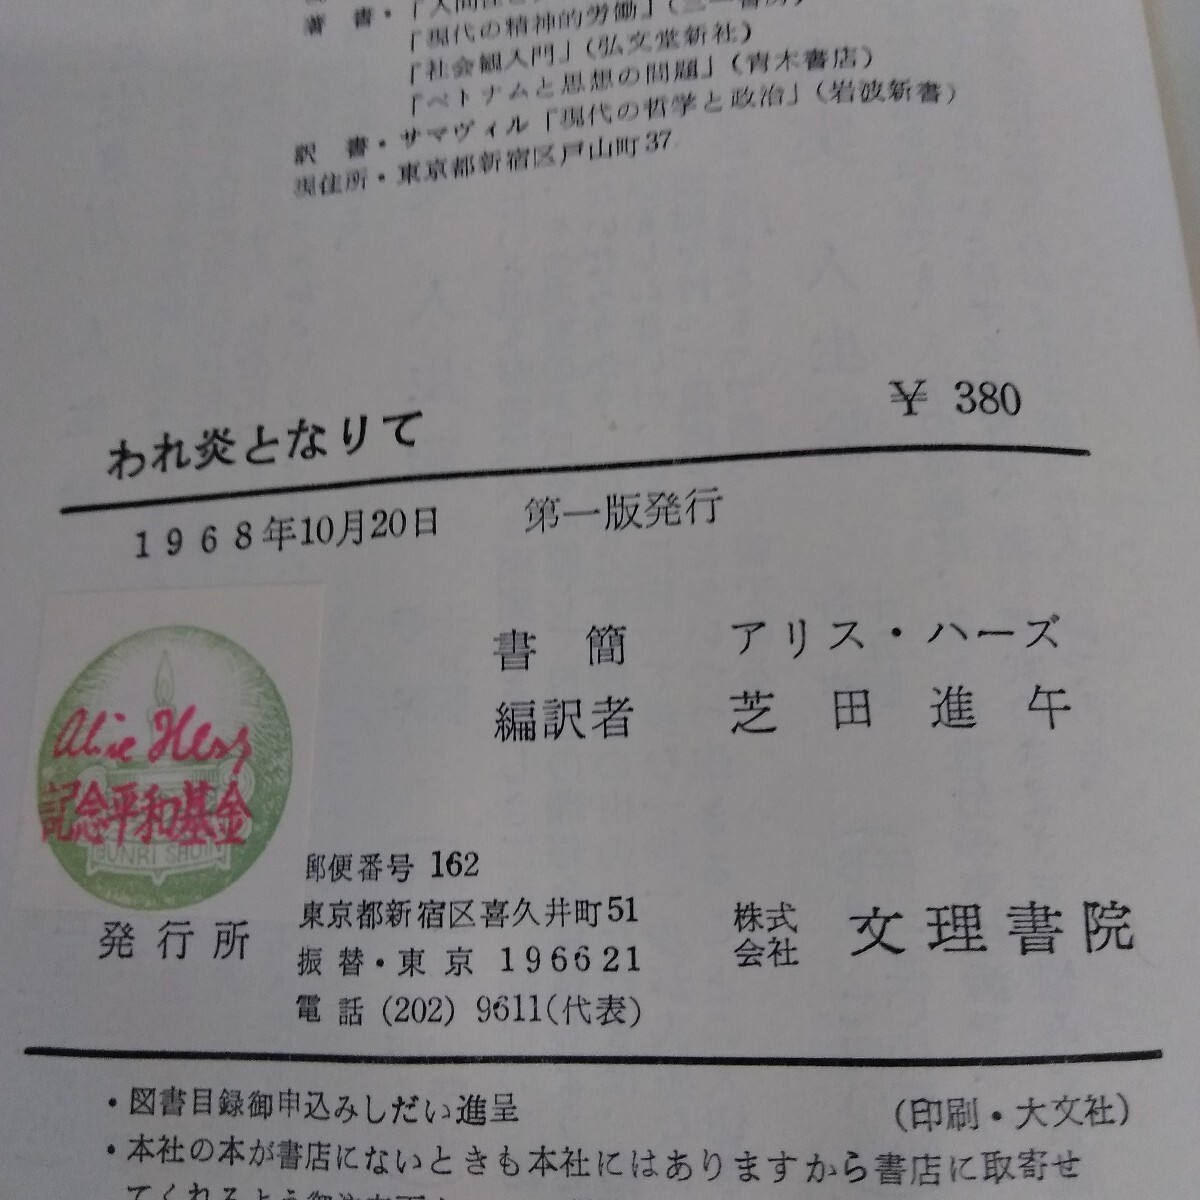 著書・「人間性と
「現代の精神的労働」(三一書房)
「社会観入門」(弘文堂新社)
「ベトナムと思想の問題」(青木書店)
訳書・サマヴィル「現代の哲学と政治」(岩波新書)
現住所・東京都新宿区戸山町37
われ炎となりて ¥ 380
1968年10月20日 第一版発行
書簡 アリス・ハーズ
編訳者 芝田進午
Alice Herz
記念平和基金
BUNRI SHOIN
発行所
郵便番号 162
東京都新宿区喜久井町51
振替・東京 196621
電話 (202) 9611(代表)
株式会社 文理書院
・図書目録御申込みしだい進呈 (印刷・大文社)
・本社の本が書店にないときも本社にはありますから書店に取寄せ
てくれるよう御注